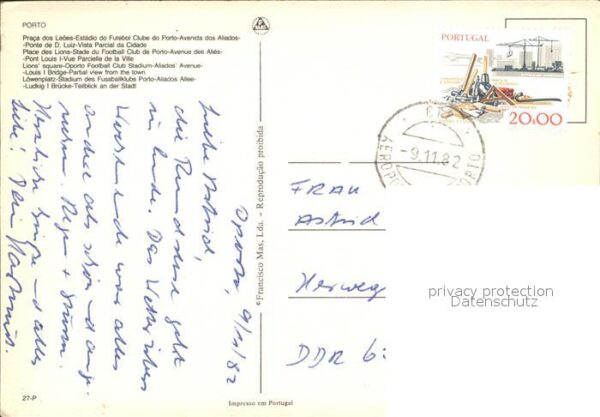 PORTO
Praça dos Leões-Estádio do Futebol Clube do Porto-Avenida dos Aliados-
-Ponte de D. Luiz-Vista Parcial da Cidade
Place des Lions-Stade du Football Club de Porto-Avenue des Aliés-
-Pont Louis I-Vue Parcielle de la Ville
Lions' square-Oporto Football Club Stadium-Aliados' Avenue-
-Louis I Bridge-Partial view from the town
Löwenplatz-Stadium des Fussballklubs Porto-Aliados Allee-
-Ludwig I Brücke-Teilblick an der Stadt
Oporto, 9/11/82
Liebe Astrid,
die Rundreise geht
zu Ende. Das Wetter übers
Wochenende war alles
andere als schön und ange-
nehm. Regen + Sturm.
Herzliche Grüße und alles
Liebe! Dein Hartmut.
©Francisco Mas, Lda. - Reprodução proibida
PORTUGAL
20$00
-9.11.82
AEROPO
PORTO
FRAU
ASTRID
Herweg
DDR 6
privacy protection
Datenschutz
27-P
Impresso em Portugal